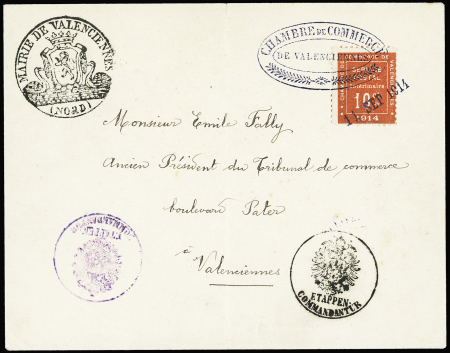 MAIRIE DE VALENCIENNES
(NORD)
CHAMBRE DE COMMERCE
DE VALENCIENNES
CHAMBRE DE COMMERCE DE VALENCIENNES
SERVICE
POSTAL
10c
1914
11 SEP 1914
Monsieur Emile Fally
Ancien Président du Tribunal de commerce
boulevard Pater
à
Valenciennes
ETAPPEN-
COMMANDANTUR